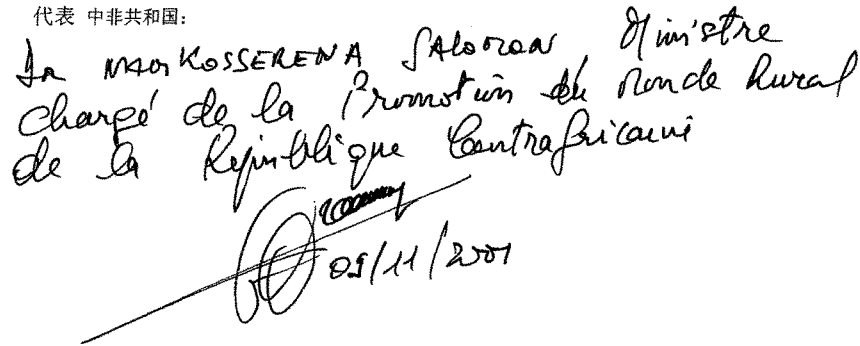 代表 中非共和国:
SALOMON, Ministre
Chargé de la Promotion du Monde Rural
de la République Centrafricaine
09/11/2001